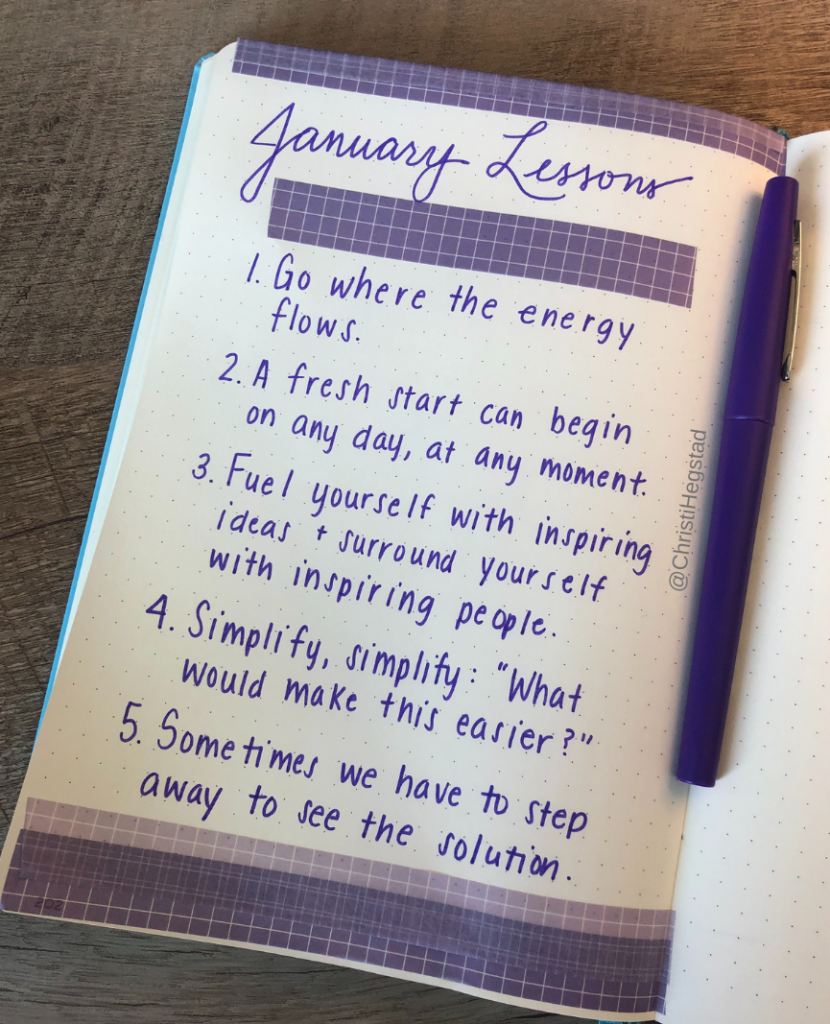 January Lessons
1. Go where the energy
flows.
2. A fresh start can begin
on any day, at any moment.
3. Fuel yourself with inspiring
ideas + surround yourself
with inspiring people.
4. Simplify, simplify: "What
would make this easier?"
5. Sometimes we have to step
away to see the solution.
@ChristiHegstad